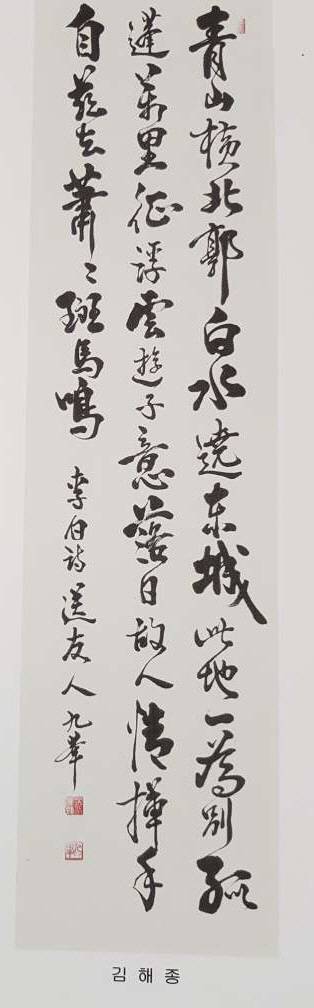 青山橫北郭白水遶東城此地一為別孤
蓬萬里征浮雲遊子意落日故人情揮手
自茲去蕭〻班馬鳴 李白詩送友人 九華
김해종